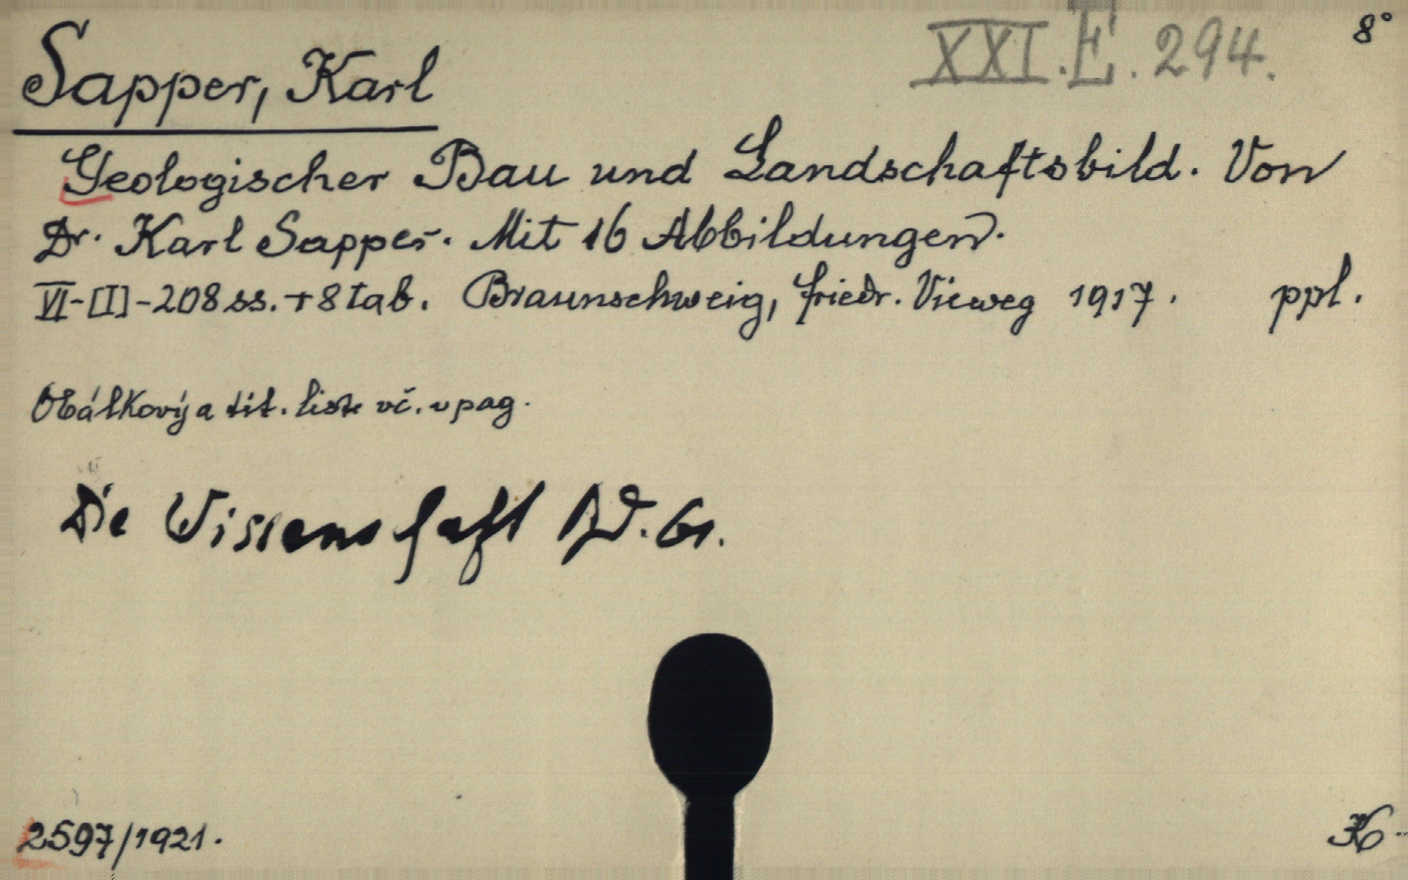 XXI.E.294.
8°
Sapper, Karl
Geologischer Bau und Landschaftsbild. Von
Dr. Karl Sapper. Mit 16 Abbildungen.
VI-[I]-208 ss. + 8 tab. Braunschweig, Friedr. Vieweg 1917. ppl.
Obálkový a tit. liste vč. v pag.
Die Wissenschaft Bd. 61.
2597/1921.